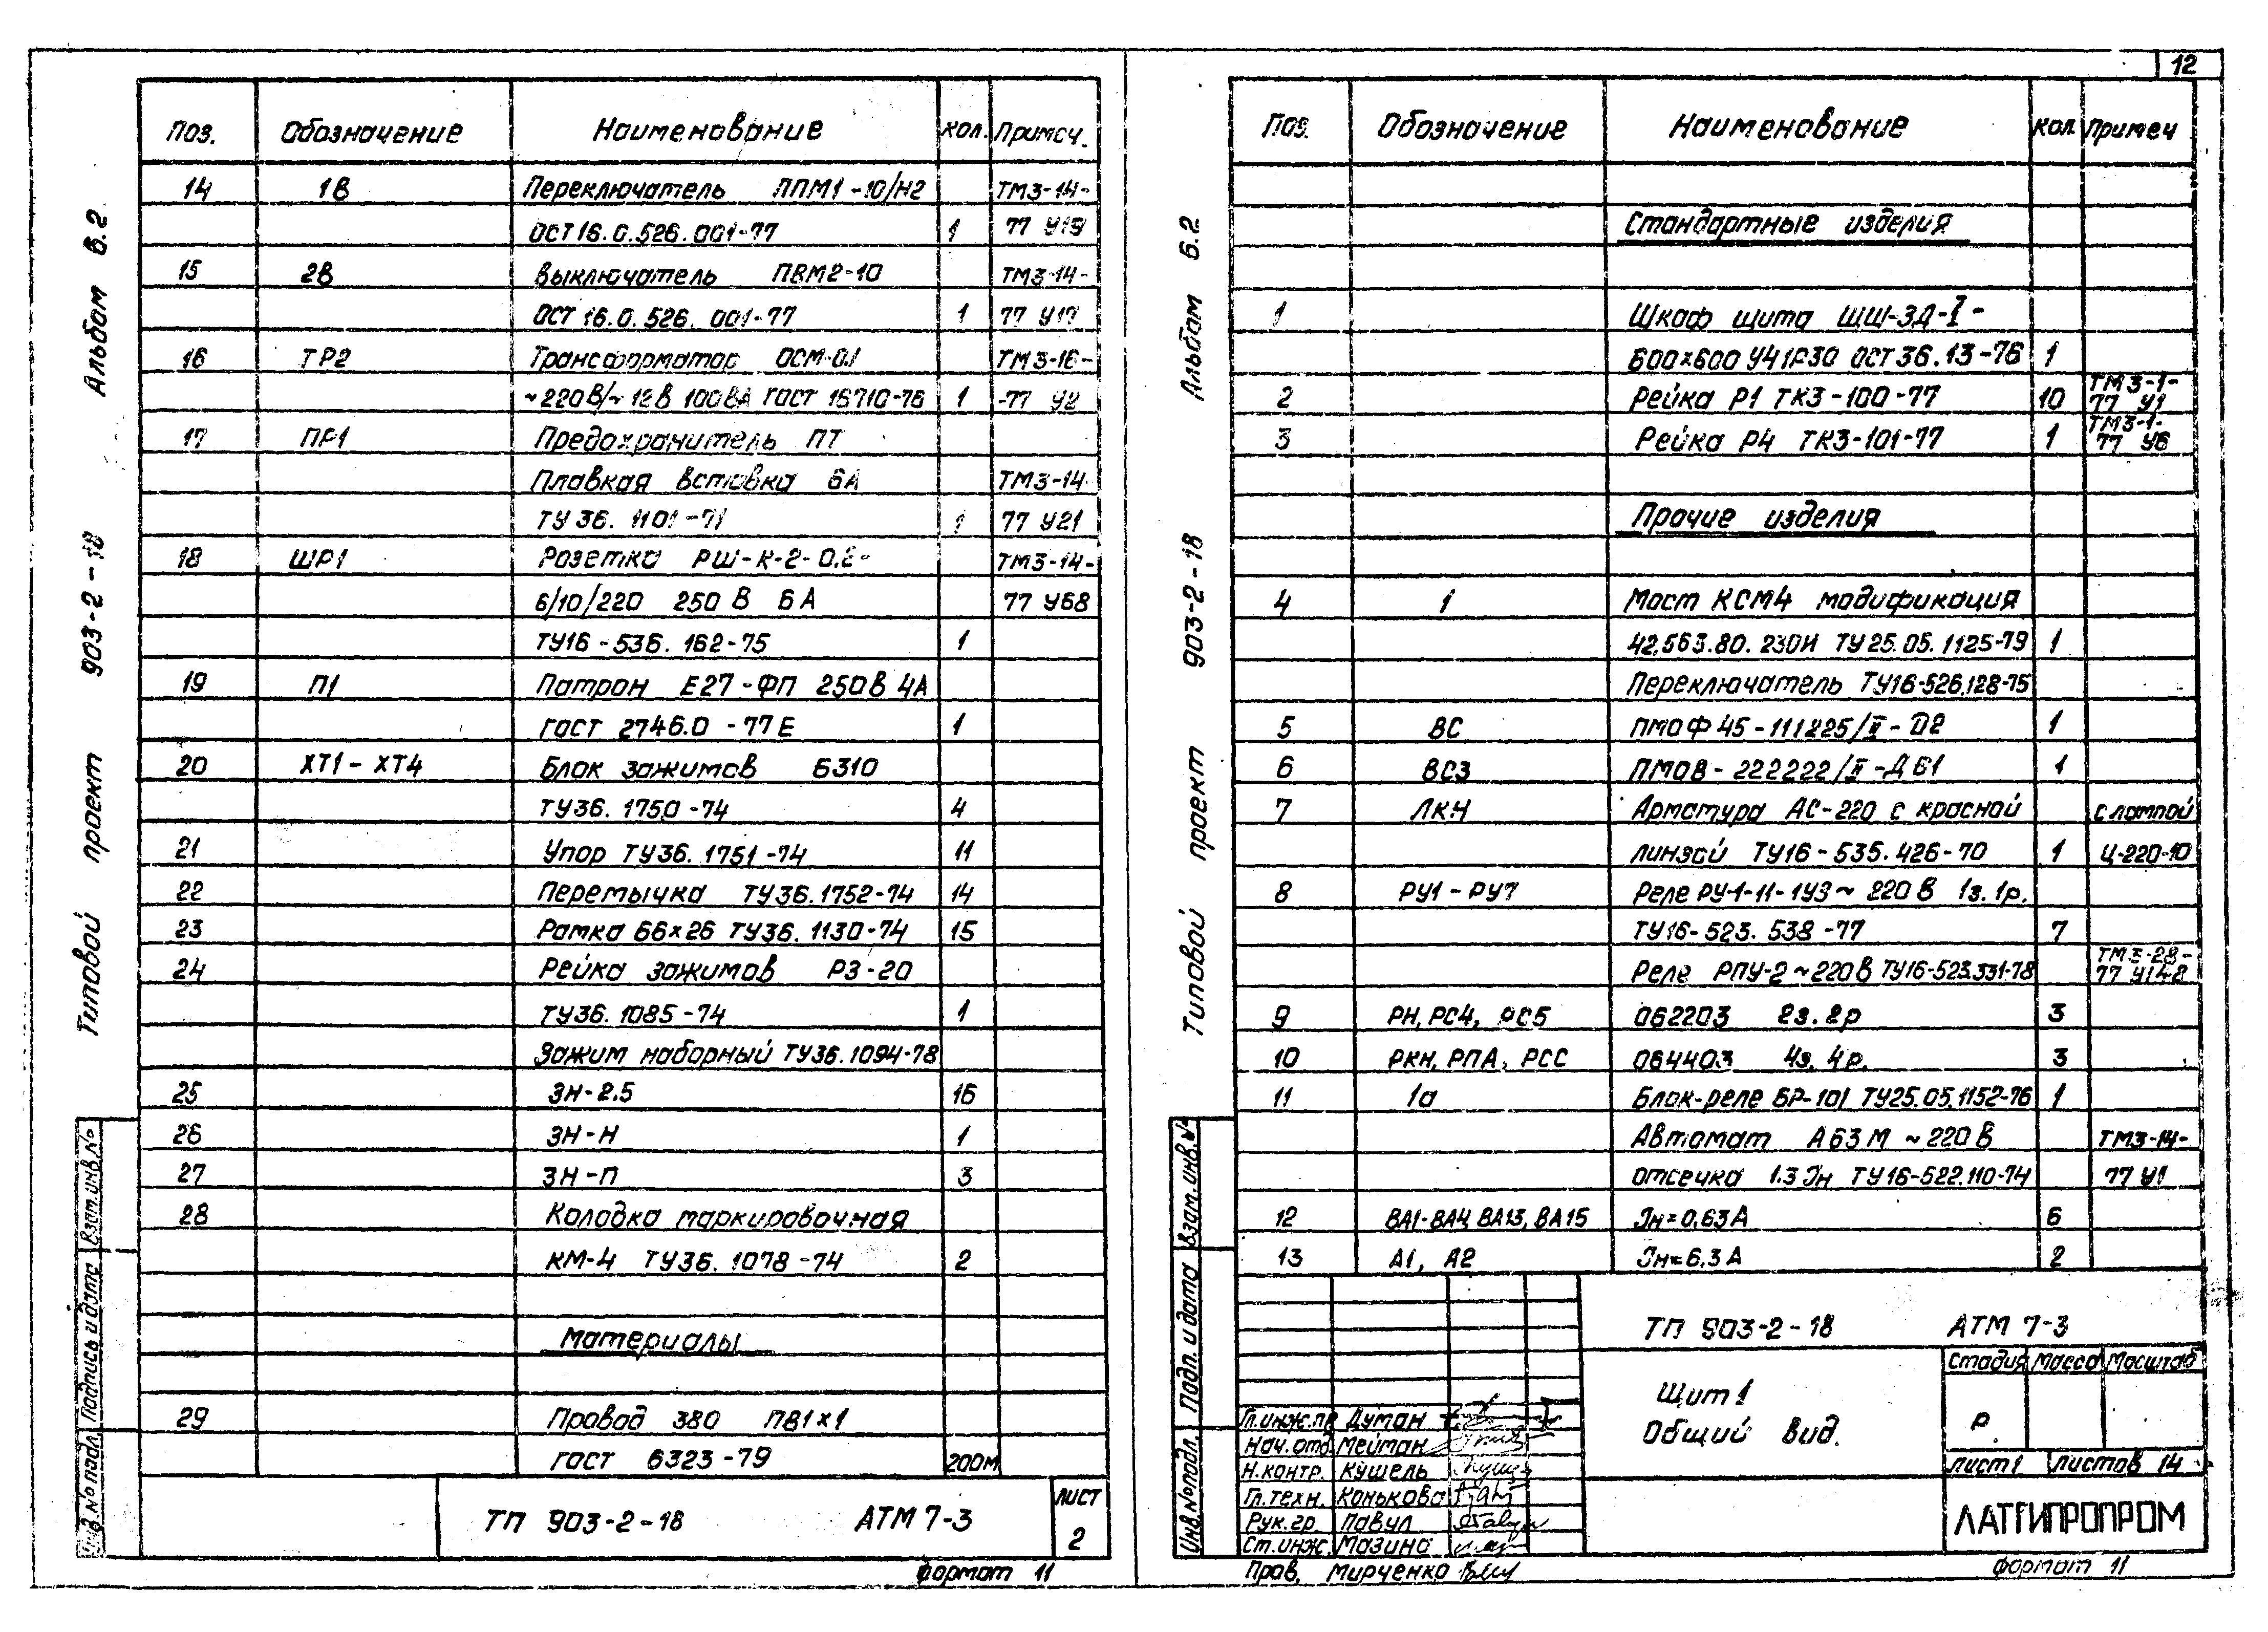 12
Альбом 6.2
Типовой проект 903-2-18
Поз. Обозначение Наименование Кол. Примеч.
14 1В Переключатель ППМ1-10/Н2 ТМ3-14-
ОСТ16.0.526.001-77 1 77 У19
15 2В Выключатель ПВМ2-10 ТМ3-14-
ОСТ 16.0.526.001-77 1 77 У17
16 ТР2 Трансформатор ОСМ-0.1 ТМ3-16-
~220В/~12В 100ВА ГОСТ 16710-76 1 -77 У2
17 ПР1 Предохранитель ПТ
Плавкая вставка 6А ТМ3-14-
ТУ 36.1101-71 1 77 У21
18 ШР1 Розетка РШ-К-2-0.2- ТМ3-14-
6/10/220 250 В 6А 77 У68
ТУ16-536.162-75 1
19 П1 Патрон Е27-ФП 250В 4А
ГОСТ 2746.0-77Е 1
20 ХТ1-ХТ4 Блок зажимов Б310
ТУ36.1750-74 4
21 Упор ТУ36.1751-74 11
22 Перемычка ТУ36.1752-74 14
23 Рамка 66х26 ТУ36.1130-74 15
24 Рейка зажимов РЗ-20
ТУ36.1085-74 1
Зажим наборный ТУ36.1094-78
25 ЗН-2.5 16
26 ЗН-Н 1
27 ЗН-П 3
28 Колодка маркировочная
КМ-4 ТУ36.1078-74 2
Материалы
29 Провод 380 ПВ1х1
ГОСТ 6323-79 200м
ТП 903-2-18 АТМ 7-3 Лист
2
Формат 11
Инв.№подл. Подпись и дата Взам.инв.№
Альбом 6.2
Типовой проект 903-2-18
Поз. Обозначение Наименование Кол. Примеч
Стандартные изделия
1 Шкаф щита ЩШ-ЗД-I-
600х600 У4 1Р30 ОСТ 36.13-76 1
2 Рейка Р1 ТК3-100-77 10 ТМ3-1-
77 У1
3 Рейка Р4 ТК3-101-77 1 ТМ3-1-
77 У6
Прочие изделия
4 1 Мост КСМ4 модификация
42.563.80.230И ТУ 25.05.1125-79 1
Переключатель ТУ16-526.128-75
5 ВС ПМОФ45-111225/II-Д2 1
6 ВСЗ ПМОВ-222222/II-Д61 1
7 ЛКН Арматура АС-220 с красной с лампой
линзой ТУ16-535.426-70 1 Ц-220-10
8 РУ1-РУ7 Реле РУ-1-11-1У3~220В 1з.1р.
ТУ16-523.538-77 7
Реле РПУ-2~220В ТУ16-523.331-78 ТМ3-28-
77 У148
9 РН, РС4, РС5 062203 2з.2р 3
10 РКН, РПА, РСС 064403 4з.4р. 3
11 1а Блок-реле БР-101 ТУ25.05.1152-76 1
Автомат А63М ~220В ТМ3-14-
отсечка 1.3 Iн ТУ16-522.110-74 77 У1
12 ВА1-ВА4, ВА13, ВА15 Iн=0,63А 6
13 А1, А2 Iн=6.3А 2
Инв.№подл. Подп. и дата Взам.инв.№
ТП 903-2-18 АТМ 7-3
Щит 1
Общий вид.
Стадия Масса Масштаб
Р
Лист 1 Листов 14
ЛАТГИПРОПРОМ
Гл.инж.пр Думан
Нач.отд Мейман
Н.контр. Кушель
Гл.техн. Конькова
Рук.гр. Павул
Ст.инж. Мазина
Пров. Мирченко
Формат 11